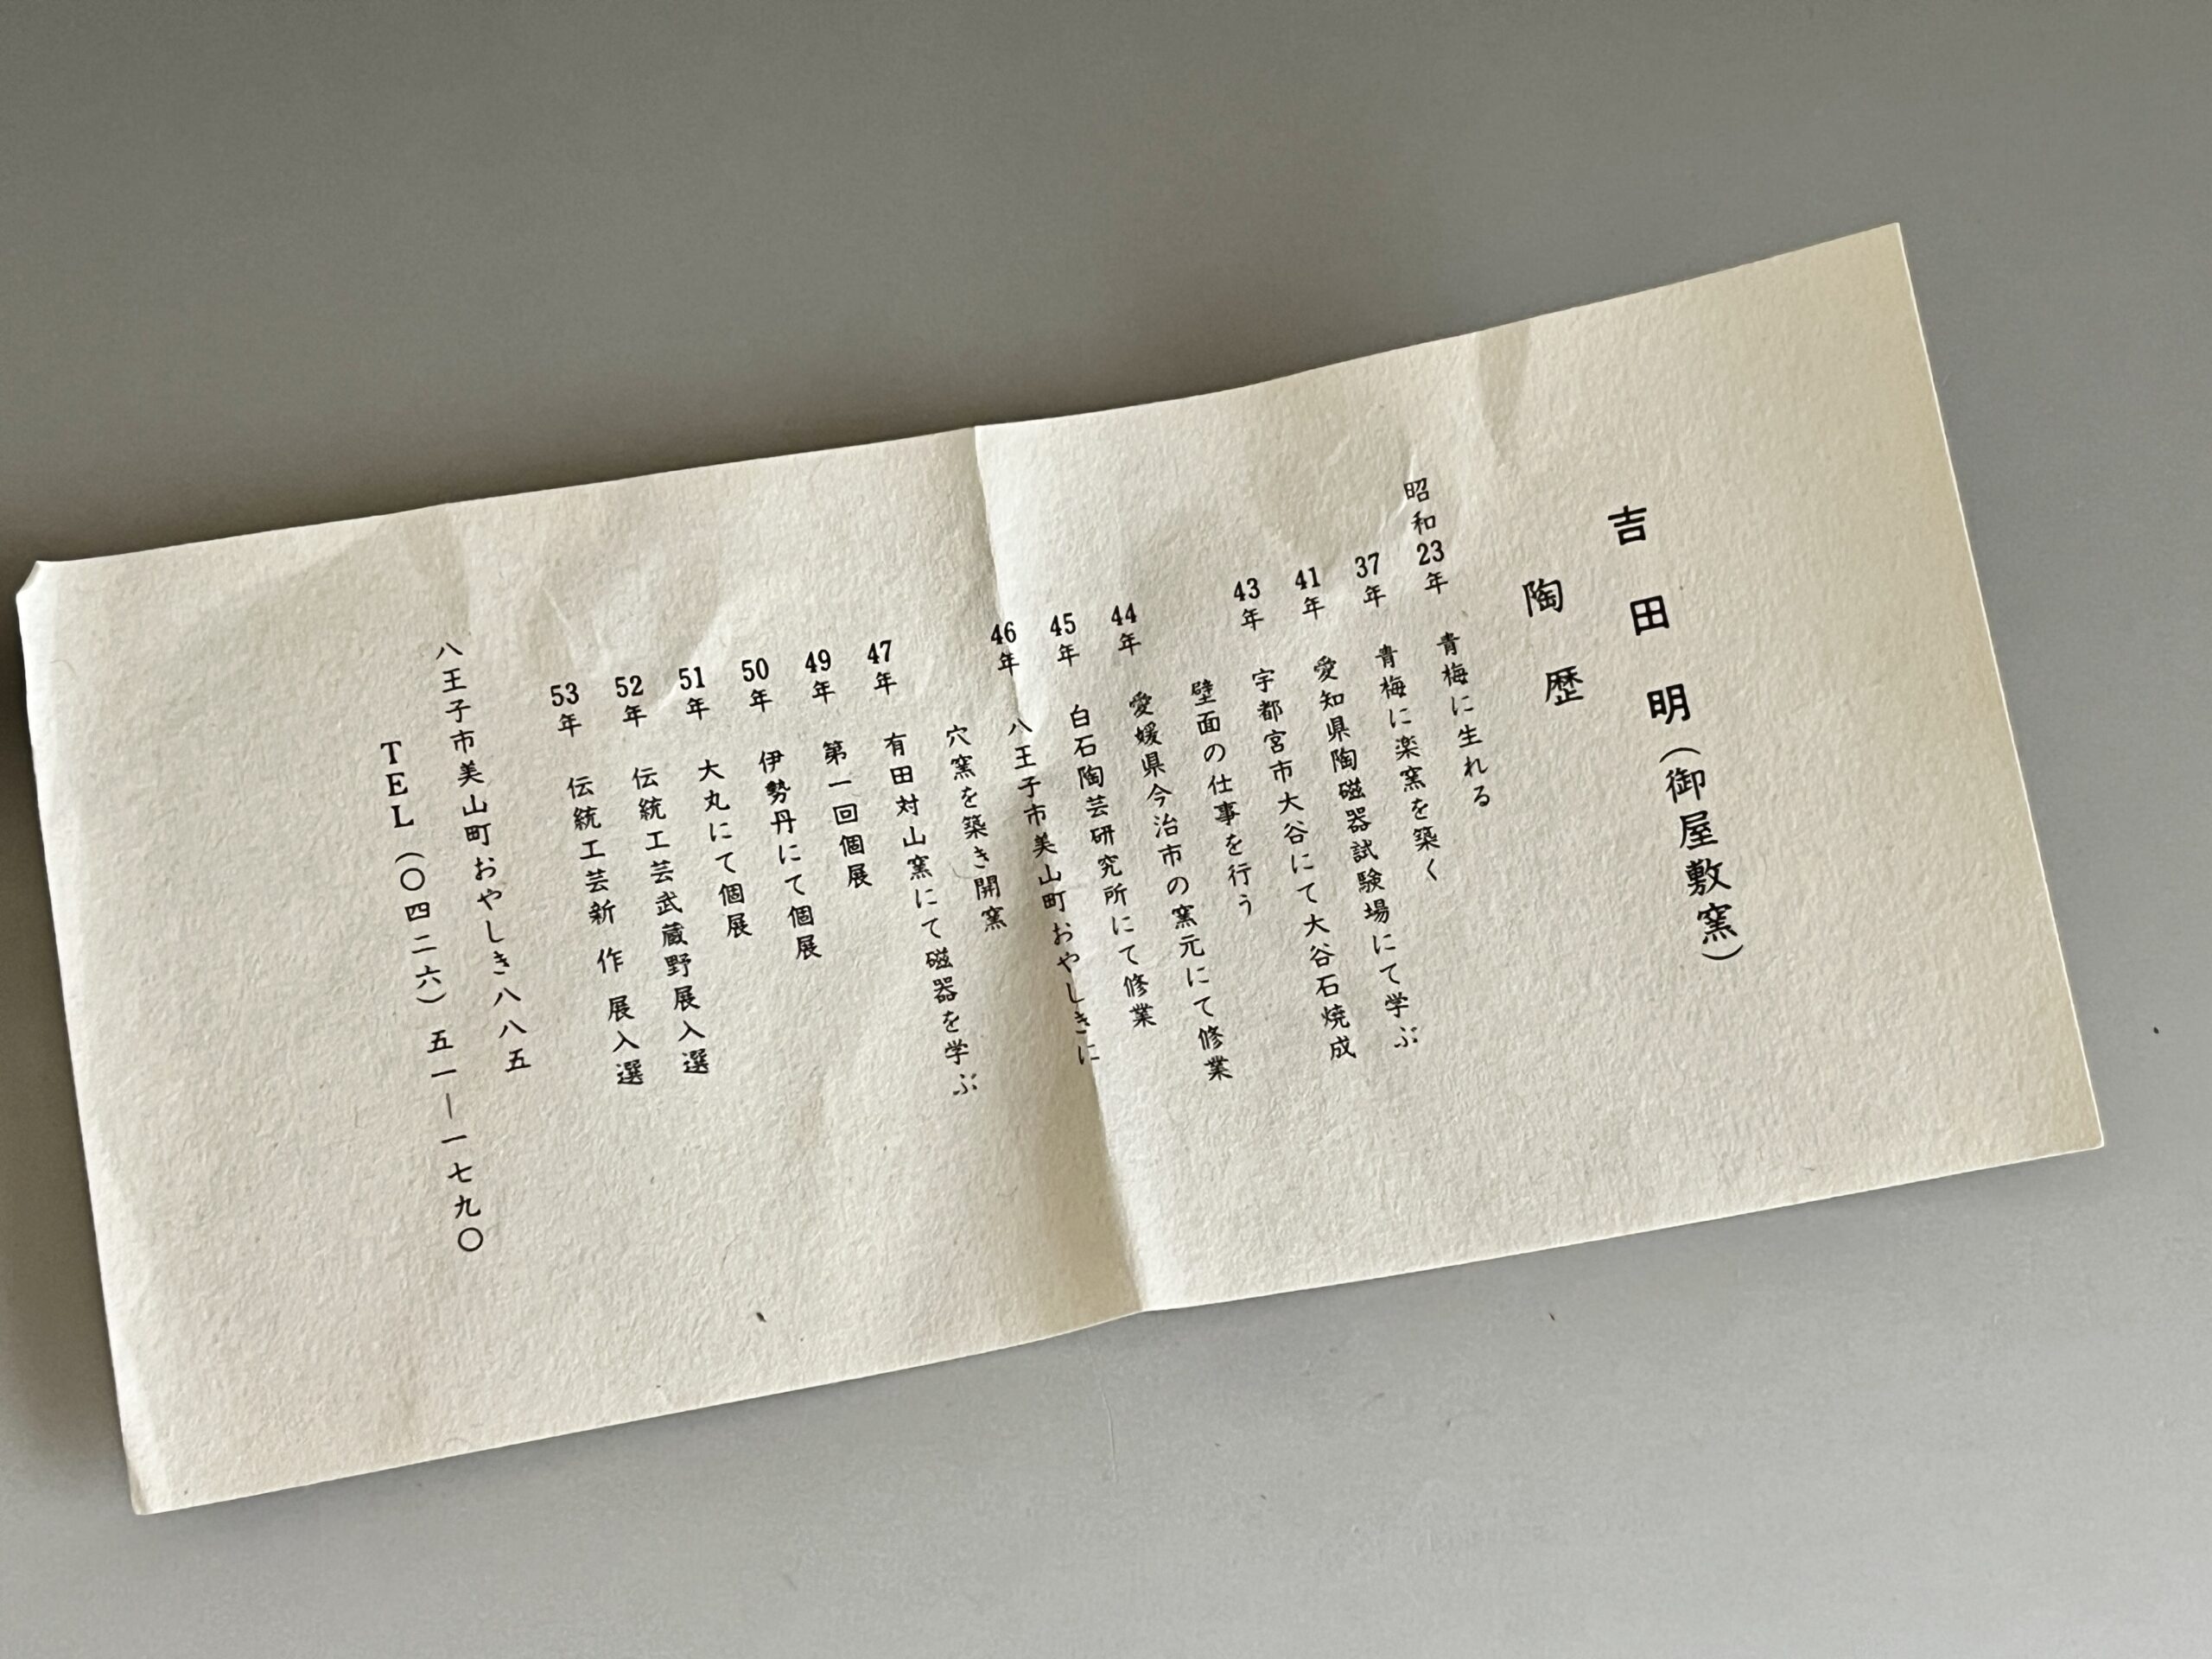 吉田明（御屋敷窯）
陶歴
昭和23年 青梅に生れる
37年 青梅に楽窯を築く
41年 愛知県陶磁器試験場にて学ぶ
43年 宇都宮市大谷にて大谷石焼成
壁面の仕事を行う
44年 愛媛県今治市の窯元にて修業
45年 白石陶芸研究所にて修業
46年 八王子市美山町おやしきに
穴窯を築き開窯
47年 有田対山窯にて磁器を学ぶ
49年 第一回個展
50年 伊勢丹にて個展
51年 大丸にて個展
52年 伝統工芸武蔵野展入選
53年 伝統工芸新作展入選
八王子市美山町おやしき八八五
TEL（〇四二六）五一－一七九〇